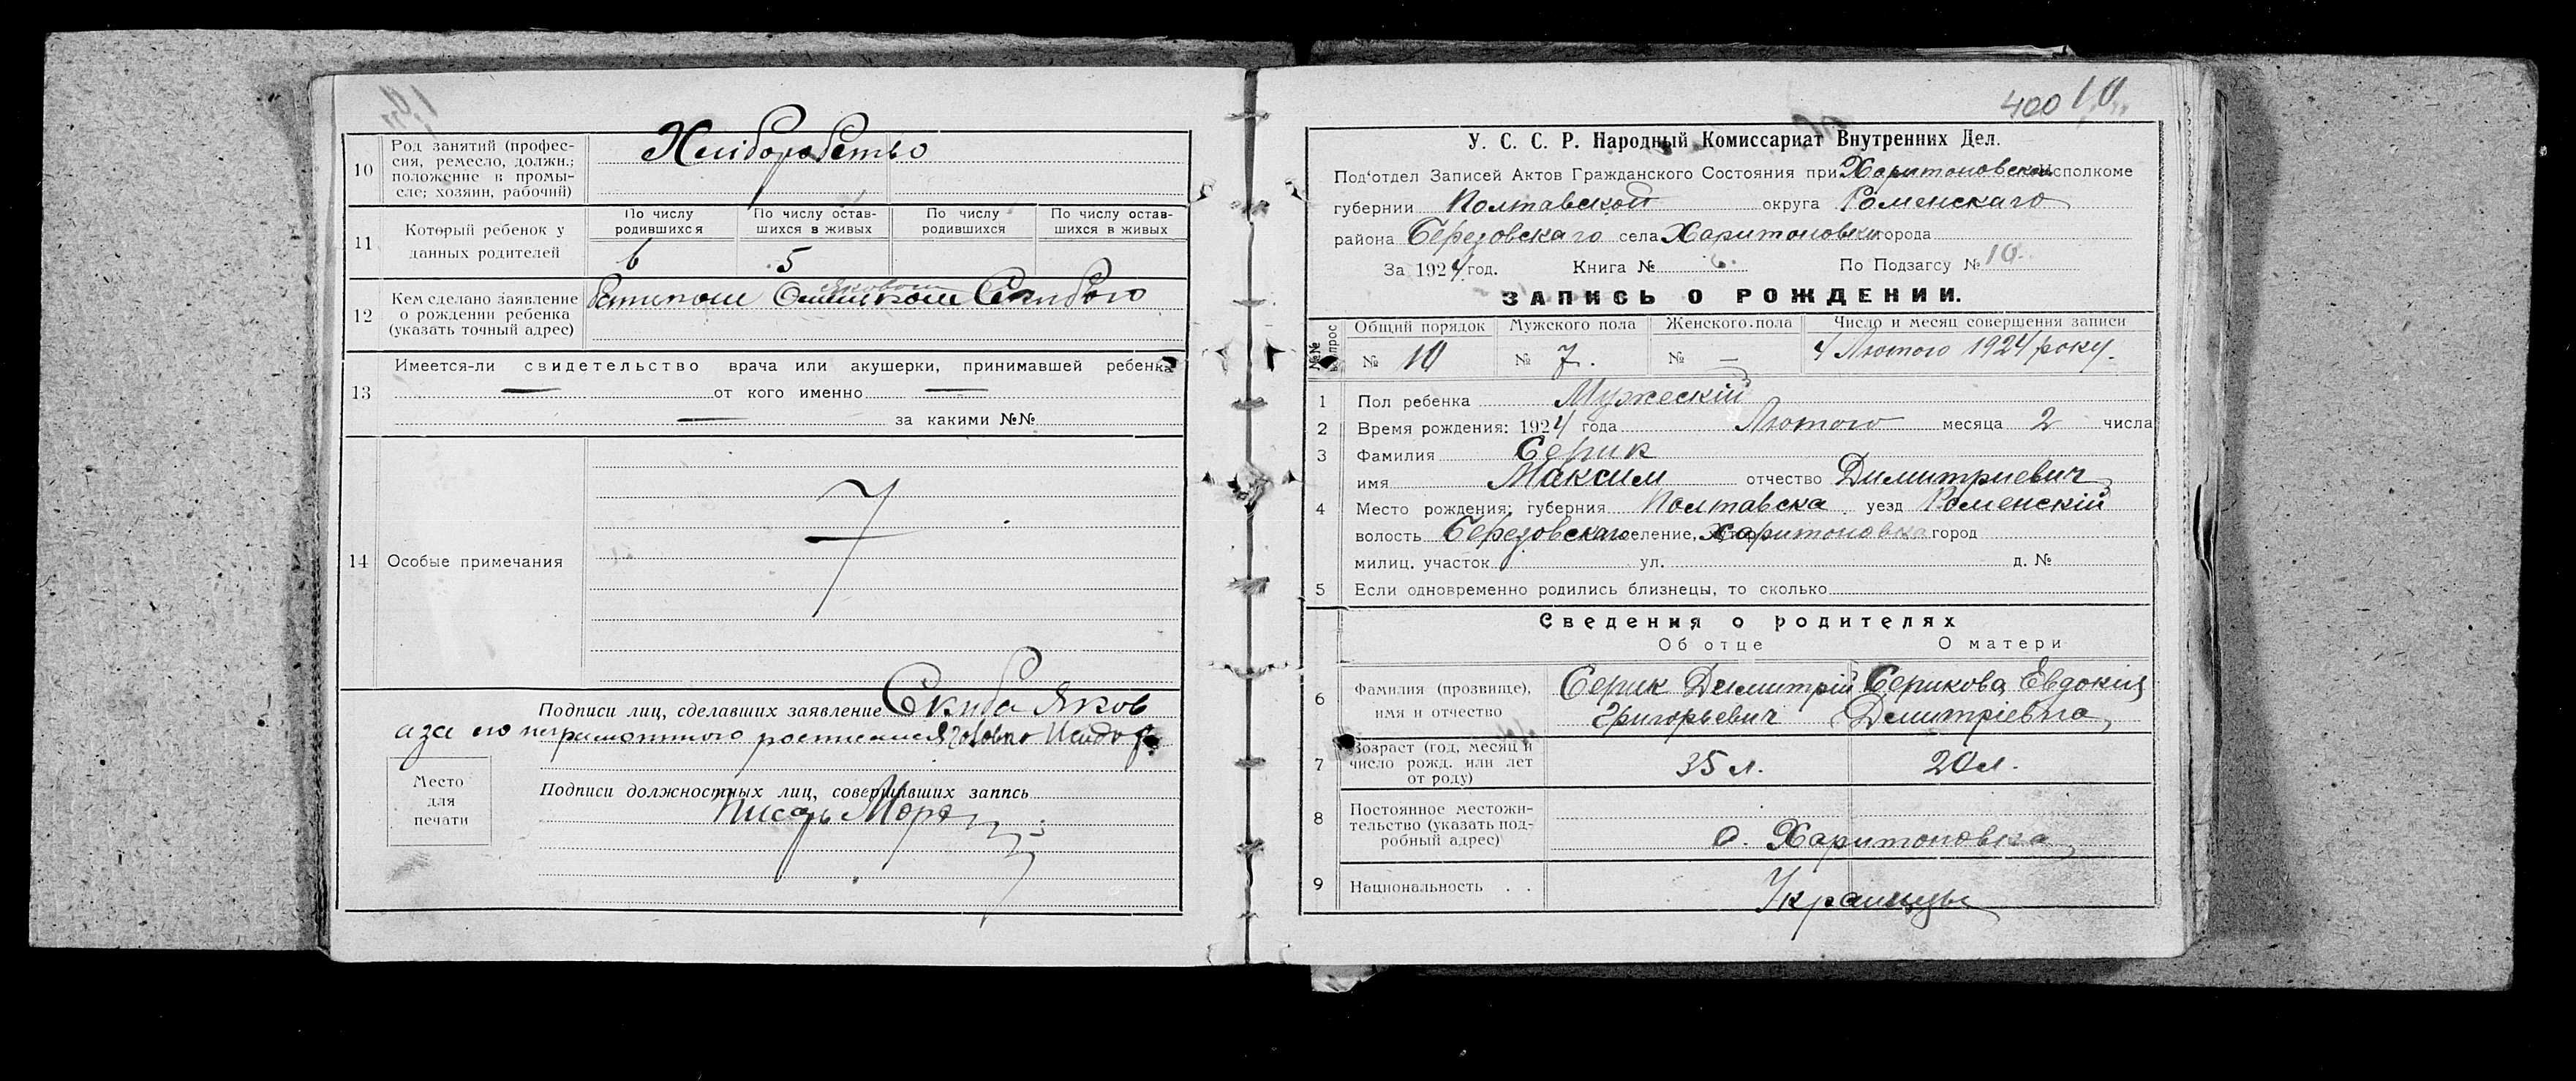 10 Род занятий (профес-
сия, ремесло, должн.;
положение в промы-
сле; хозяин, рабочий)
Хліборобство
11 Который ребенок у
данных родителей
По числу родившихся
По числу остав-шихся в живых
По числу родившихся
По числу остав-шихся в живых
6 5
12 Кем сделано заявление
о рождении ребенка
(указать точный адрес)
Скибою
13 Имеется-ли свидетельство врача или акушерки, принимавшей ребенка
— от кого именно —
— за какими №№
14 Особые примечания
Подписи лиц, сделавших заявление Скиба Яков
аза его неграмотного
Место
для
печати
Подписи должностных лиц, совершивших запись
Писарь
400 10
У. С. С. Р. Народный Комиссариат Внутренних Дел.
Под'отдел Записей Актов Гражданского Состояния при Харитоновском Исполкоме
губернии Полтавской округа Роменскаго
района Березовскаго села Харитоновки города
За 1924 год. Книга № По Подзагсу № 10.
ЗАПИСЬ О РОЖДЕНИИ.
№№ вопрос
Общий порядок Мужского пола Женского пола Число и месяц совершения записи
№ 10 № 7. № — 4 Лютого 1924 року.
1 Пол ребенка Мужескій
2 Время рождения: 1924 года Лютого месяца 2 числа
3 Фамилия Серик
имя Максим отчество Димитриевич
4 Место рождения: губерния Полтавска уезд Роменскій
волость Березовскаго селение, Харитоновка город
милиц. участок ул. д. №
5 Если одновременно родились близнецы, то сколько
Сведения о родителях
Об отце О матери
6 Фамилия (прозвище),
имя и отчество
Серик Димитрій
Григорьевич
Серикова Евдокия
Димитріевна
7 Возраст (год, месяц и
число рожд. или лет
от роду)
35 л. 20 л.
8 Постоянное местожи-
тельство (указать под-
робный адрес)
с. Харитоновка
9 Национальность . .
Украинцы